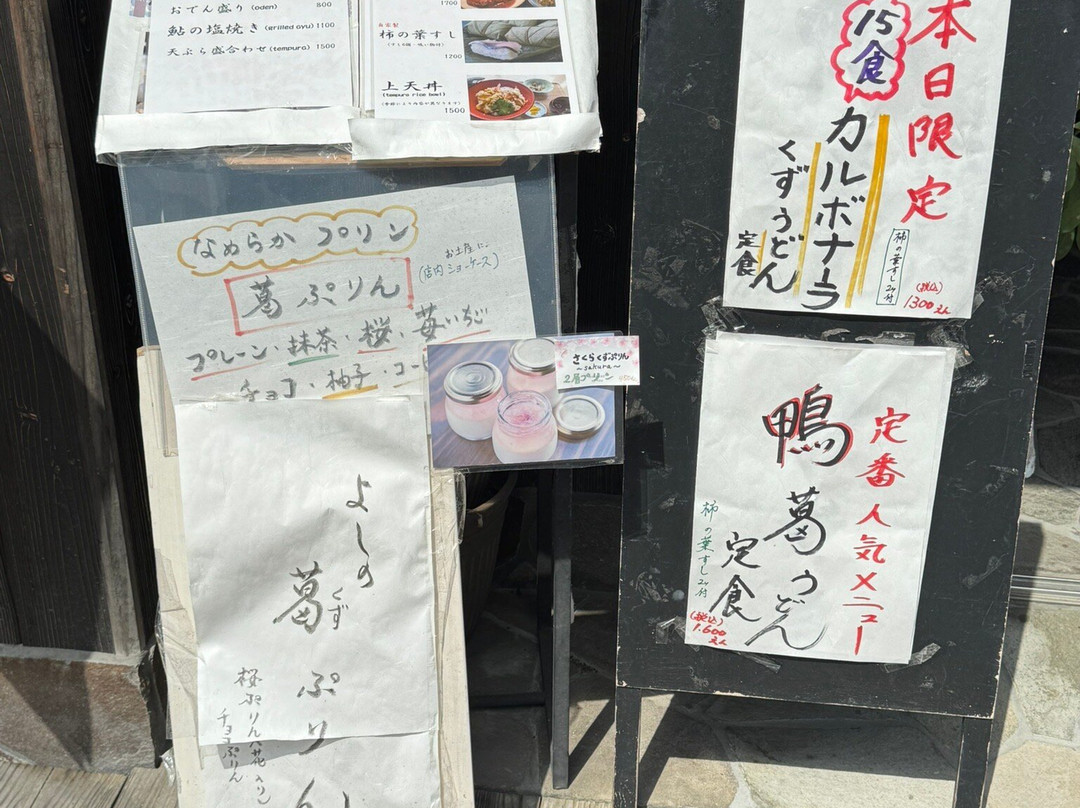 おでん盛り (oden) 800
鮎の塩焼き (grilled ayu) 1100
天ぷら盛合わせ (tempura) 1500
1700
自家製
柿の葉すし
1200
上天丼
(tempura rice bowl)
1500
なめらか プリン
葛 ぷりん
お土産に
(店内ショーケース)
プレーン・抹茶・桜・苺いちご
チョコ・柚子・コーヒ
さくらくずぷりん
~sakura~
2層プリン
よしの
葛 くず
ぷりん
桜ぷりん
チョコぷりん
本日限定
15食
カルボナーラ
くずうどん
定食
柿の葉すし2ヶ付
(税込)
1300えん
定番人気メニュー
鴨葛うどん
定食
柿の葉すし2ヶ付
(税込)
1.600えん